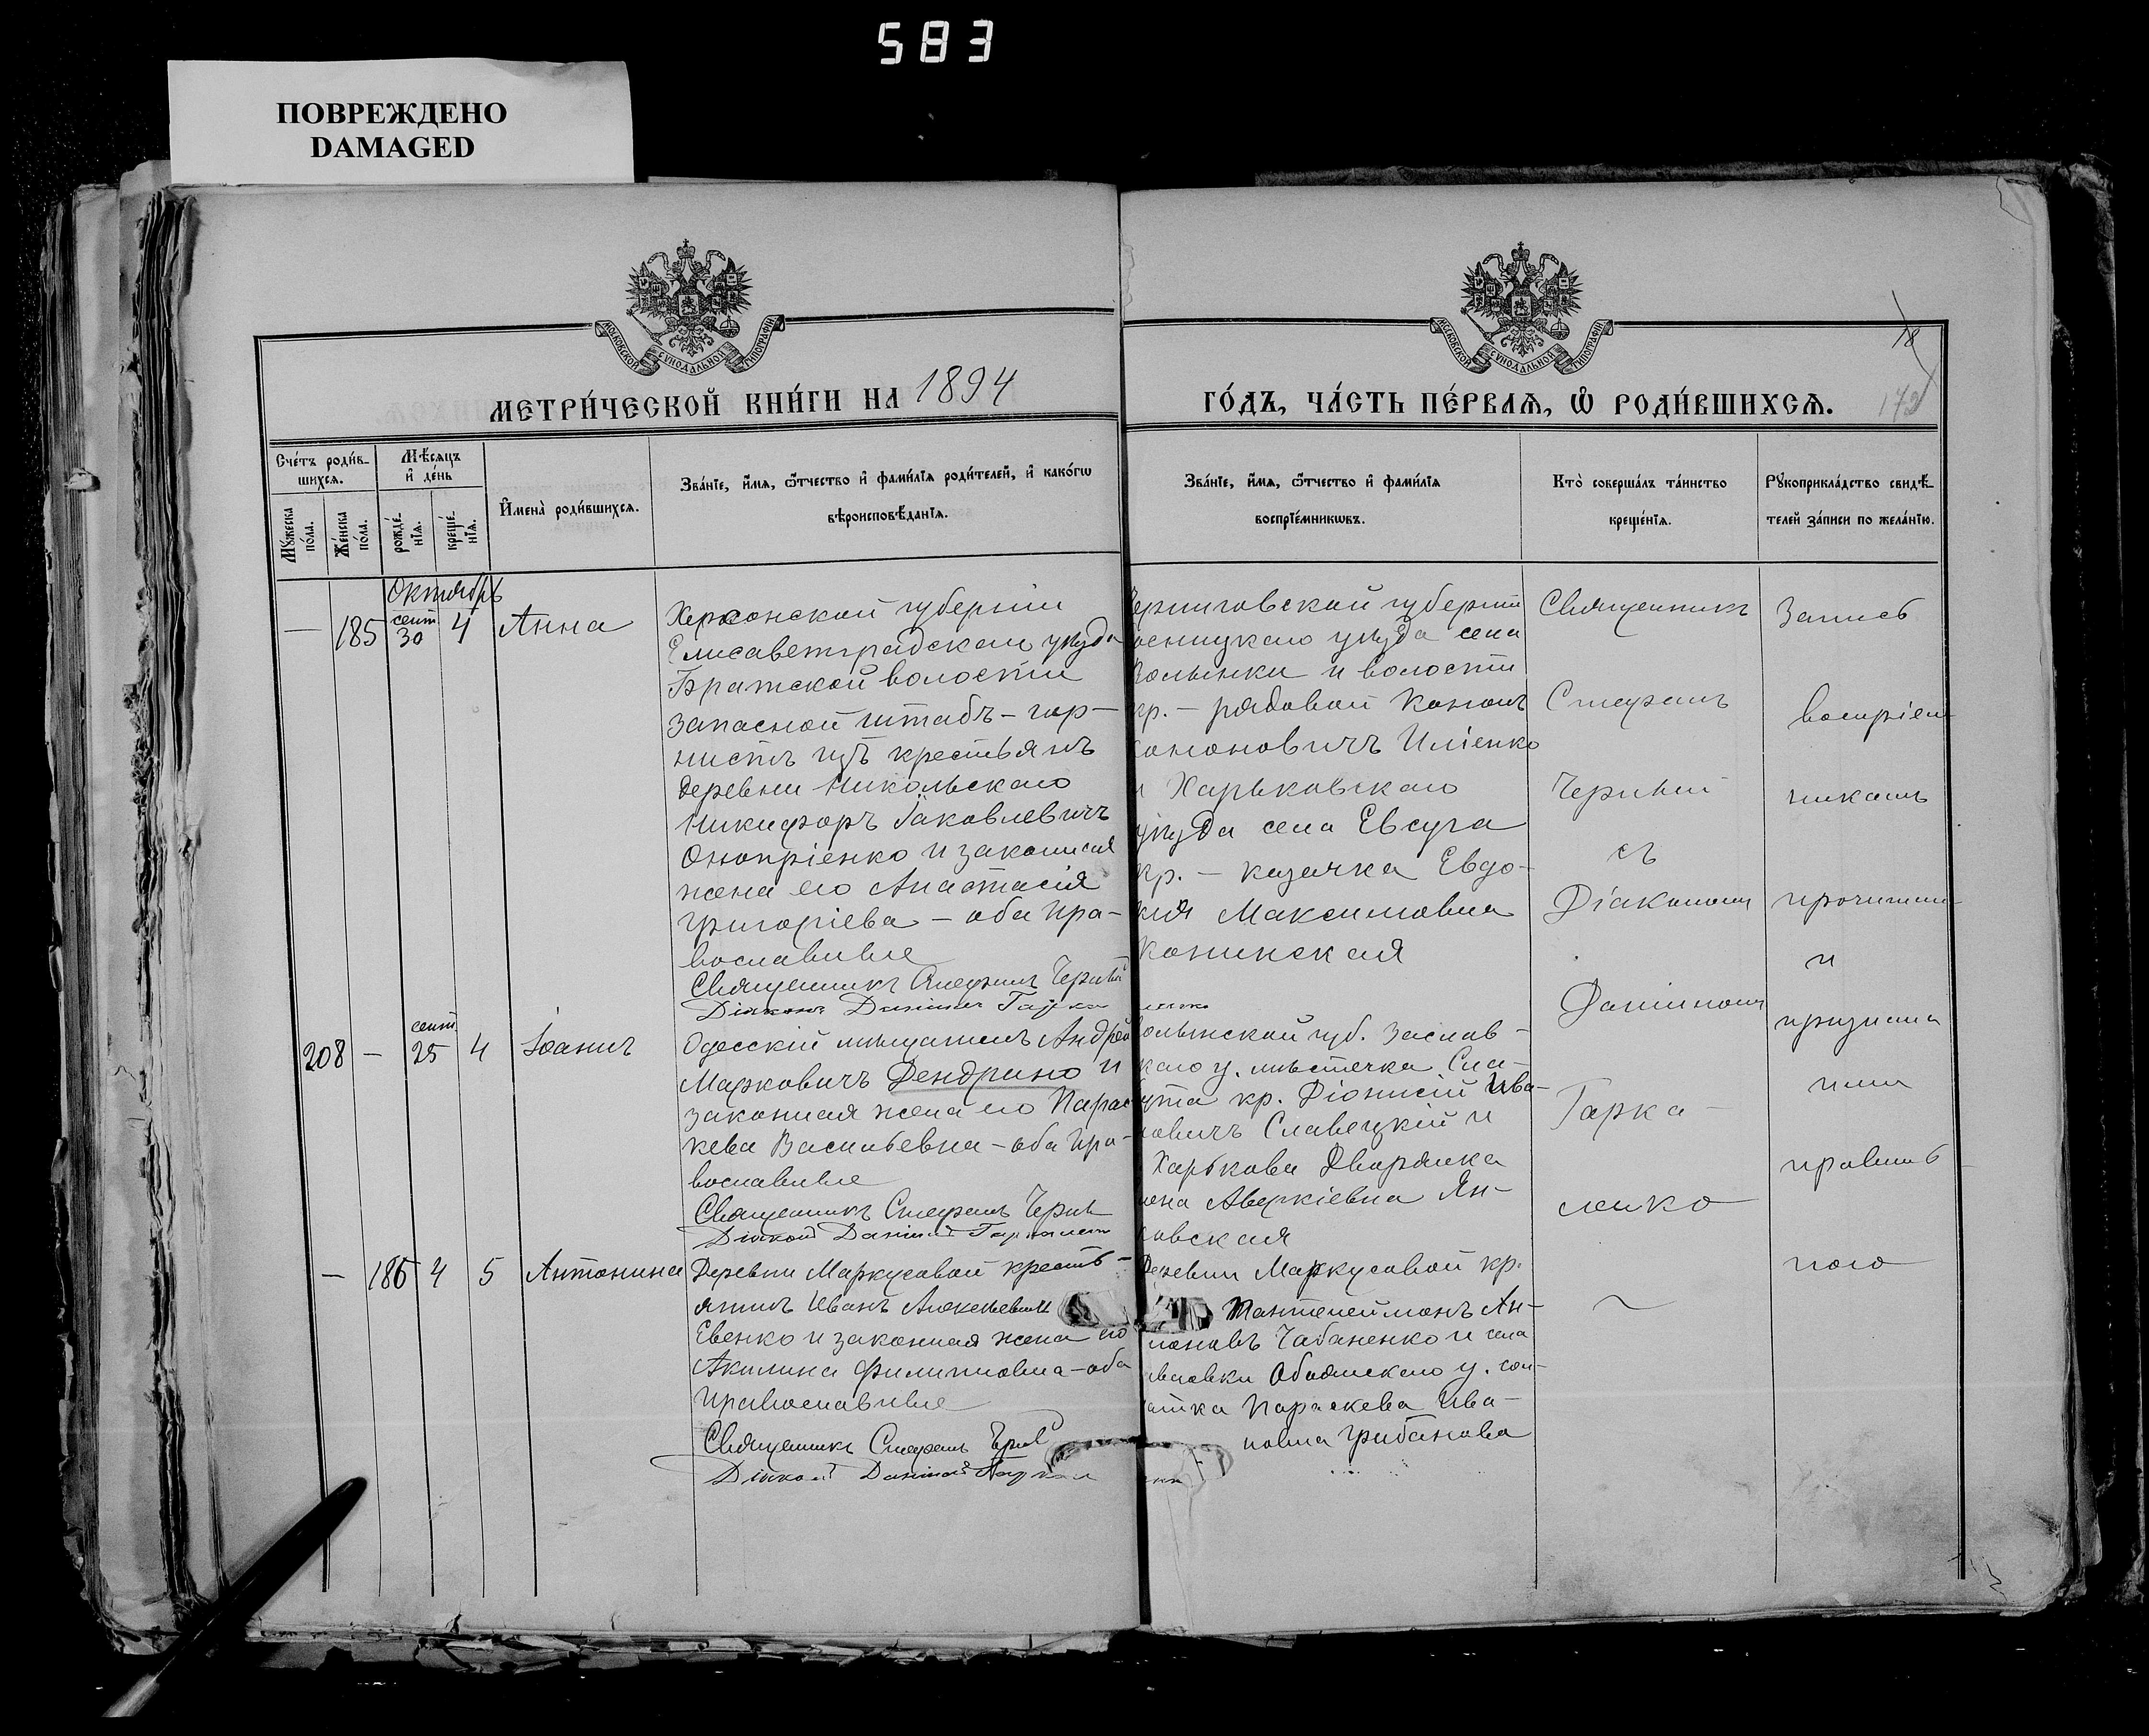 583
ПОВРЕЖДЕНО
DAMAGED
МОСКОВСКОЙ СѴНОДАЛЬНОЙ ТИПОГРАФІИ
МОСКОВСКОЙ СѴНОДАЛЬНОЙ ТИПОГРАФІИ
18
МЕТРИ́ЧЕСКОЙ КНИ́ГИ НА 1894
ГО́ДЪ, ЧА́СТЬ ПЕ́РВАѦ, Ѡ҆ РОДИ́ВШИХСѦ.
Сче́тъ роди́в-
шихсѧ.
Мѣ́сѧцъ
и҆ де́нь
Мꙋ́жеска
по́ла.
Же́нска
по́ла.
рожде́-
нїѧ.
креще́-
нїѧ.
И҆мена̀ роди́вшихсѧ.
Зва́нїе, и҆́мѧ, ѻ҆́тчество и҆ фами́лїѧ роди́телей, и҆ како́гѡ
вѣроисповѣ́данїѧ.
Зва́нїе, и҆́мѧ, ѻ҆́тчество и҆ фами́лїѧ
воспрїе́мникѡвъ.
Кто̀ соверша́лъ та́инство
креще́нїѧ.
Рꙋкоприкла́дство свидѣ́-
телей за́писи по жела́нїю.
Октябрь
— 185 сент. 30 4 Анна
Херсонской губерніи
Елисаветградскаго уѣзда
Братской волости
запасной штабъ-гор-
нистъ изъ крестьянъ
деревни Никольскаго
Никифоръ Іаковлевичъ
Оноприенко и законная
жена его Анастасія
Григоріева — оба пра-
вославные
Священникъ Стефанъ Черный
Діаконъ Даніилъ Гарка
ерниговской губерніи
уѣзда села
олынки и волости
кр. — рядовой Кононъ
ононовичъ Иліенко
и Харьковскаго
уѣзда села Евсуга
кр. — казачка Евдо-
кія Максимовна
Конинская
ленко
Священникъ
Стефанъ
Черный
съ
Діакономъ
Даніиломъ
Гарка-
ленко
Запись
воспріем-
никамъ
прочитана
и
признана
ими
правиль
ною
208 — сент. 25 4 Іоаннъ
Одесскій мѣщанинъ Андрей
Марковичъ Дендрино и
законная жена его Парас
кева Васильевна — оба пра-
вославные
Священникъ Стефанъ Черный
Діаконъ Даніилъ Гаркален
олынской губ. Заслав-
каго у. мѣстечка Сла-
ута кр. Діонисій Ива-
новичъ Славецкій и
Харькова Дворянка
Аверкіевна Ян-
ковская
— 186 4 5 Антонина
Деревни Маркусовой кресть-
янинъ Иванъ Алексѣевичъ
Евенко и законная жена его
Акилина Филипповна — оба
православные
Священникъ Стефанъ Черный
Діаконъ Даніилъ Гаркал
Деревни Маркусовой кр.
Пантелеймонъ Ан-
тоновъ Чабаненко и села
Обоянскаго у. сол-
атка Параскева Ива-
новна Грибанова